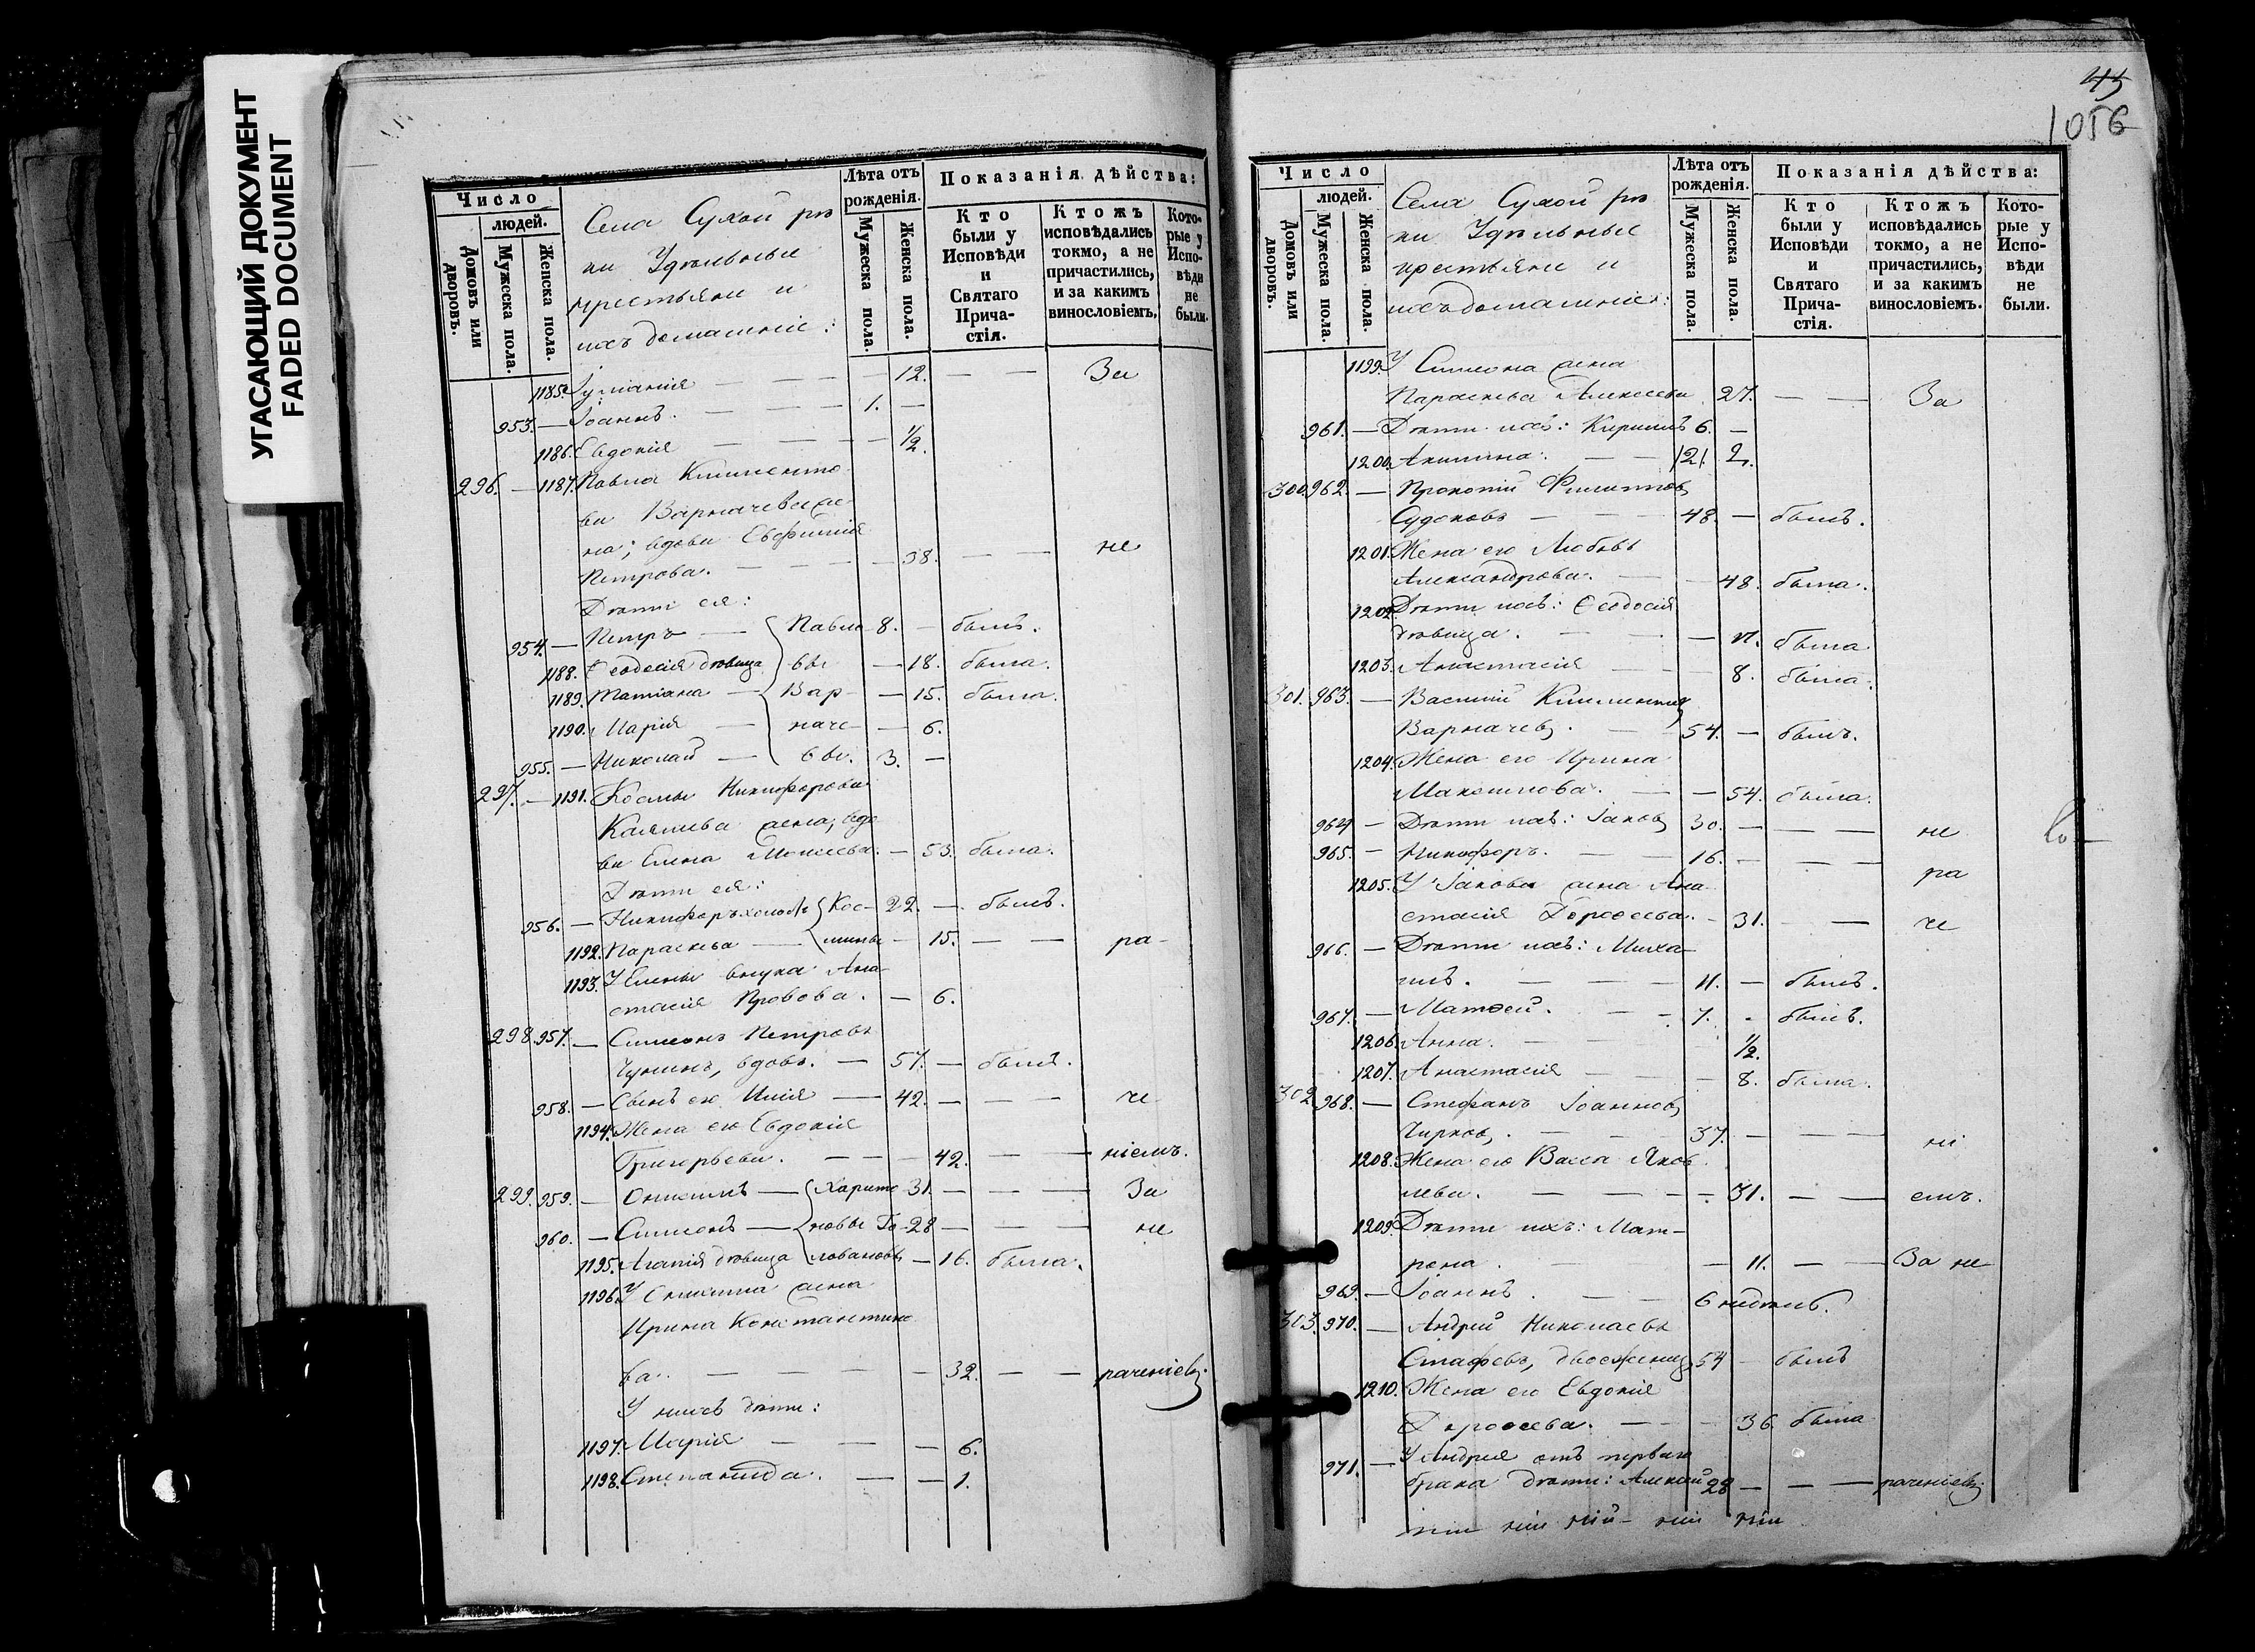 УГАСАЮЩИЙ ДОКУМЕНТ
FADED DOCUMENT
Число
людей.
Домовъ или дворовъ.
Мужеска пола.
Женска пола.
Села Сухой рѣ
ки Удѣльные
крестьяне и
ихъ домашніе:
Лѣта отъ рожденія.
Мужеска пола.
Женска пола.
Показанія дѣйства:
Кто были у Исповѣди и Святаго Прича-стія.
Ктожъ исповѣдались токмо, а не причастились, и за какимъ винословіемъ.
Кото-рые у Испо-вѣди не были.
1185. Іуліанія — — — — 12. — — За
953. — Іоаннъ. — — — 1. —
1186. Евдокія — — — — 1/2.
296. — 1187. Павла Климento
ва Варначева же
на; вдова Евфимія
Петрова. — — — — 38. — — не
Дѣти ея:
954. — Петръ — Павло 8. — былъ.
1188. Ѳеодосія дѣвица вы — 18. была.
1189. Татіана — Вар — 15. была.
1190. Марія — наче — 6.
955. — Николай — вы. 3. —
297. — 1191. Космы Никифорова
жена; вдо
ва Елена Моисеева. — 53. была.
Дѣти ея:
956. — Никифоръ холостъ Кос- 22. — былъ.
1192. Параскева — мины — 15. — — ра-
1193. У Елены внука Ана
стасія Провова. — 6.
298. 957. — Симеонъ Петровъ
вдовъ. — 57. — былъ.
958. — Сынъ его Илія — 42. — — — че
1194. Жена его Евдокія
Григорьева. — — — 42. — — ніемъ.
299. 959. — Онисимъ — Харито 31. — — — За
960. — Симеонъ — новы Го- 28 — — — не
1195. Агапія дѣвица ловановы — 16. была.
1196. У Онисима жена
Ирина Константино
ва. — — — — 32. — — раченіемъ.
У нихъ дѣти:
1197. Марія — — — 6.
1198. Степанида. — — 1.
45
1056
Число
людей.
Домовъ или дворовъ.
Мужеска пола.
Женска пола.
Села Сухой рѣ
ки Удѣльные
крестьяне и
ихъ домашніе:
Лѣта отъ рожденія.
Мужеска пола.
Женска пола.
Показанія дѣйства:
Кто были у Исповѣди и Святаго Прича-стія.
Ктожъ исповѣдались токмо, а не причастились, и за какимъ винословіемъ.
Кото-рые у Испо-вѣди не были.
1199. У Симеона жена
Параскева Алексеева 27. — — За
961. — Дѣти ихъ: Кириллъ 6. —
1200. Акилина. — — 2.
300. 962. — Прокопій Филипповъ
Судоковъ — — 48. — былъ.
1201. Жена его Любовь
Александрова. — — 48. была.
1202. Дѣти ихъ: Ѳеодосія
дѣвица. — — — 17. была
1203. Анастасія — — 8. была.
301. 963. — Василій Климентовъ
Варначевъ. — 54. — былъ.
1204. Жена его Ирина
Максимова. — — 54. была.
964 — Дѣти ихъ: Іаковъ 30. — — — не
965. — Никифоръ. — — 16. — — — ра
1205. У Іакова жена Ана
стасія Дороѳеева. — 31. — — че
966. — Дѣти ихъ: Миха
илъ. — — — 11. — былъ.
967. — Матѳей. — — 7. — былъ.
1206. Анна. — — 1/2.
1207. Анастасія — — — 8. была.
302 968. — Стефанъ Іоанновъ
Чирковъ. — — 37. — — — ні
1208. Жена его Васса Яков
лева. — — — — 31. — — емъ.
1209. Дѣти ихъ: Мат-
рона. — — 11. — — За не
969. — Іоаннъ. — — 6 недѣль.
303. 970. — Андрей Николаевъ
двоеженецъ 54 — былъ
1210. Жена его Евдокія
Дороѳеева. — — 36. была
971. — У Андрея отъ перваго
брака дѣти: Алексѣй 28 — — — раченіемъ